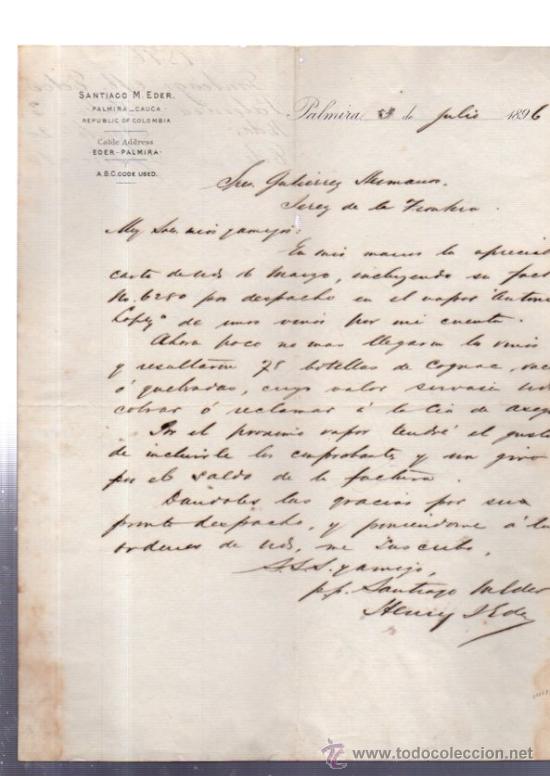 SANTIAGO M. EDER.
PALMIRA_CAUCA
REPUBLIC OF COLOMBIA
Cable Address
EDER-PALMIRA.
A.B.C. CODE USED.
Palmira, de Julio 1896
Sres. Gutierrez Hermanos.
Jerez de la Frontera
My Sres. mios y amigos:
En mis manos la apreciab
carta de Uds. 6 Marzo, incluyendo su fact
No. 6280 por despacho en el vapor "Antoni
Lopez" de unos vinos por mi cuenta.
Ahora poco no mas llegaron los vinos
y resultaron 78 botellas de Cognac, vac
ó quebradas, cuyo valor servanse Uds
cobrar ó reclamar á la Cia de Aseg
Por el proximo vapor tendré el gusto
de incluirle los comprobantes y un giro
por el saldo de la factura.
Dandoles las gracias por su
pronto despacho, y poniendome á las
ordenes de Uds, me suscribo,
S.S.S. y amigo,
p.p. Santiago M Eder
Henry J Eder
http://www.todocoleccion.net
todocoleccion